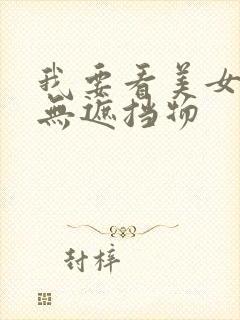 我要看美女
無遮挡物
封梓